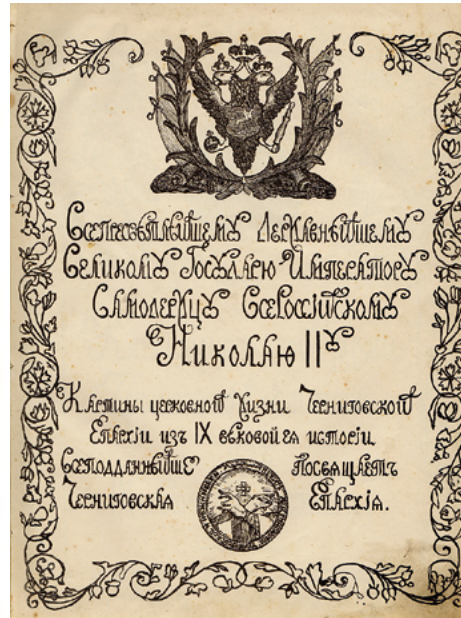 Всепресвѣтлѣйшемꙋ Державнѣйшемꙋ
Великомꙋ Госꙋдарю Императорꙋ
Самодержцꙋ Всероссійскомꙋ
Николаю IIꙋ
Картины церковной жизни Черниговской
Епархіи изъ IX вѣковой ея исторіи
Всеподданнѣйше посвящаетъ
Черниговская Епархія.